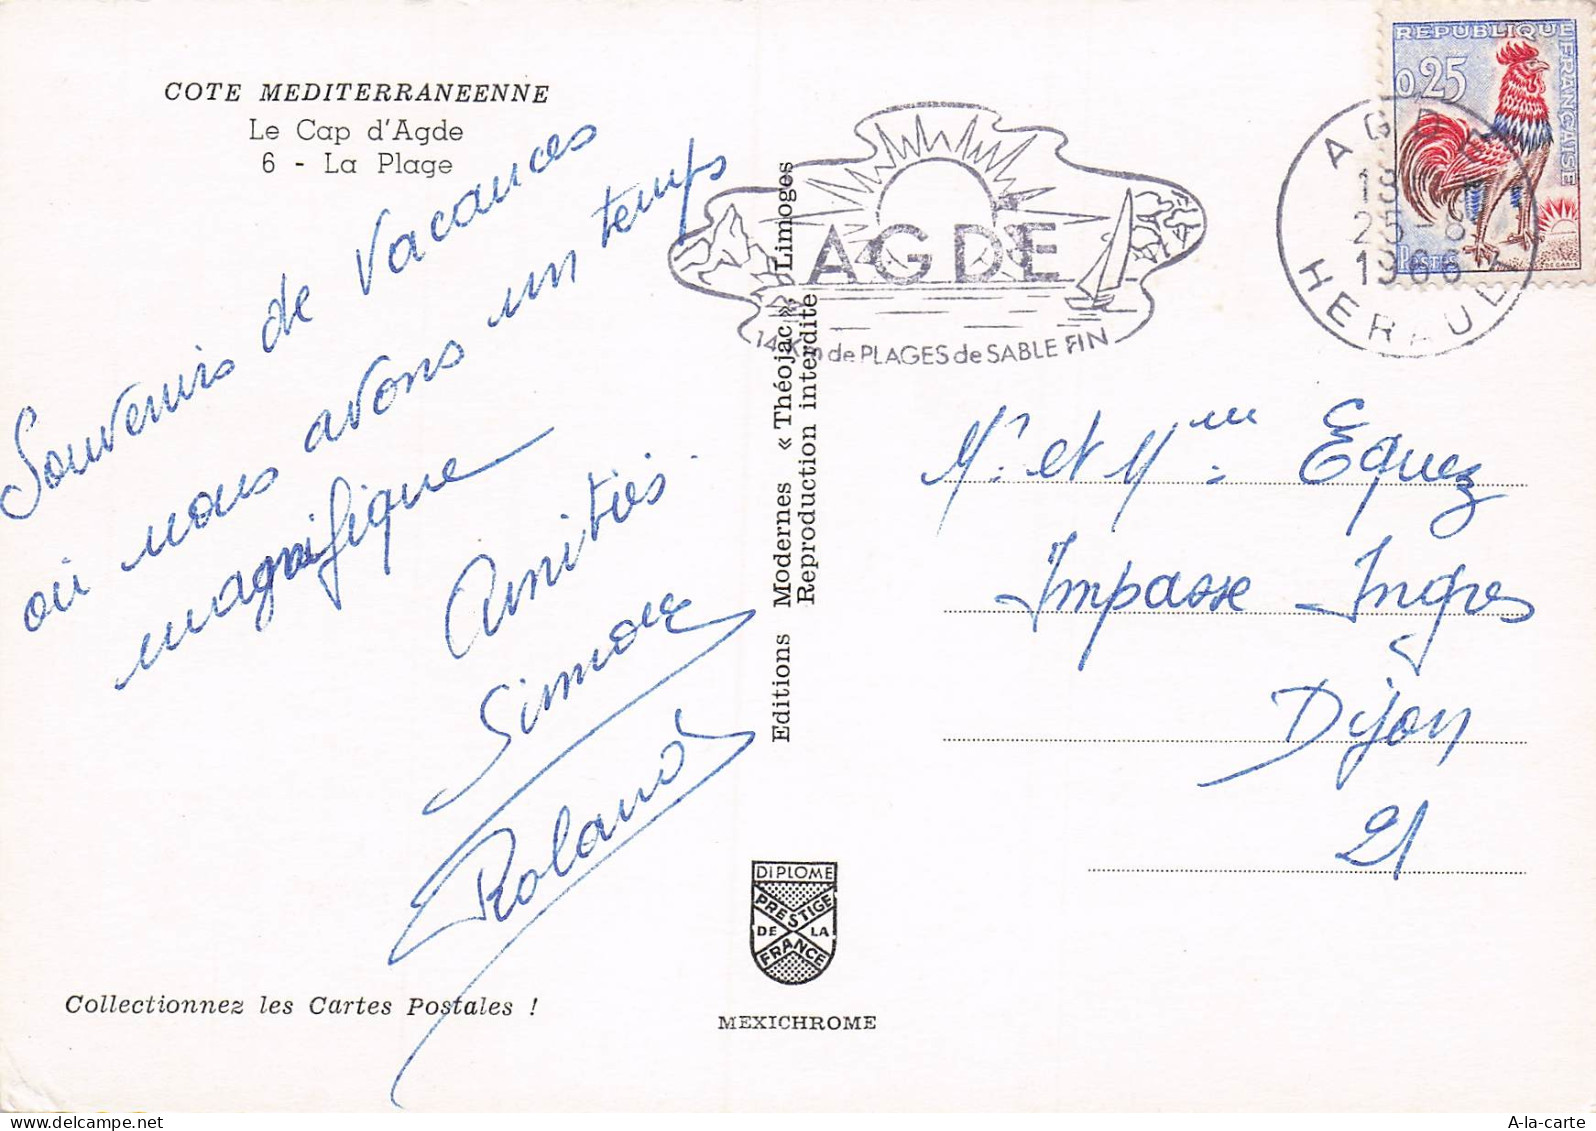 COTE MEDITERRANEENNE
Le Cap d'Agde
6 - La Plage
Souvenirs de Vacances
où nous avons un temps
magnifique
Amitiés.
Simone
Roland
Collectionnez les Cartes Postales !
Editions Modernes « Théojac » Limoges
Reproduction interdite
DIPLOME
PRESTIGE
DE LA
FRANCE
MEXICHROME
AGDE
14 Km de PLAGES de SABLE FIN
REPUBLIQUE FRANCAISE
0,25
POSTES
AGDE
18
25-8
1966
HERAULT
Mr et Mme Equez
Impasse Ingres
Dijon
21
delcampe.net
A-la-carte